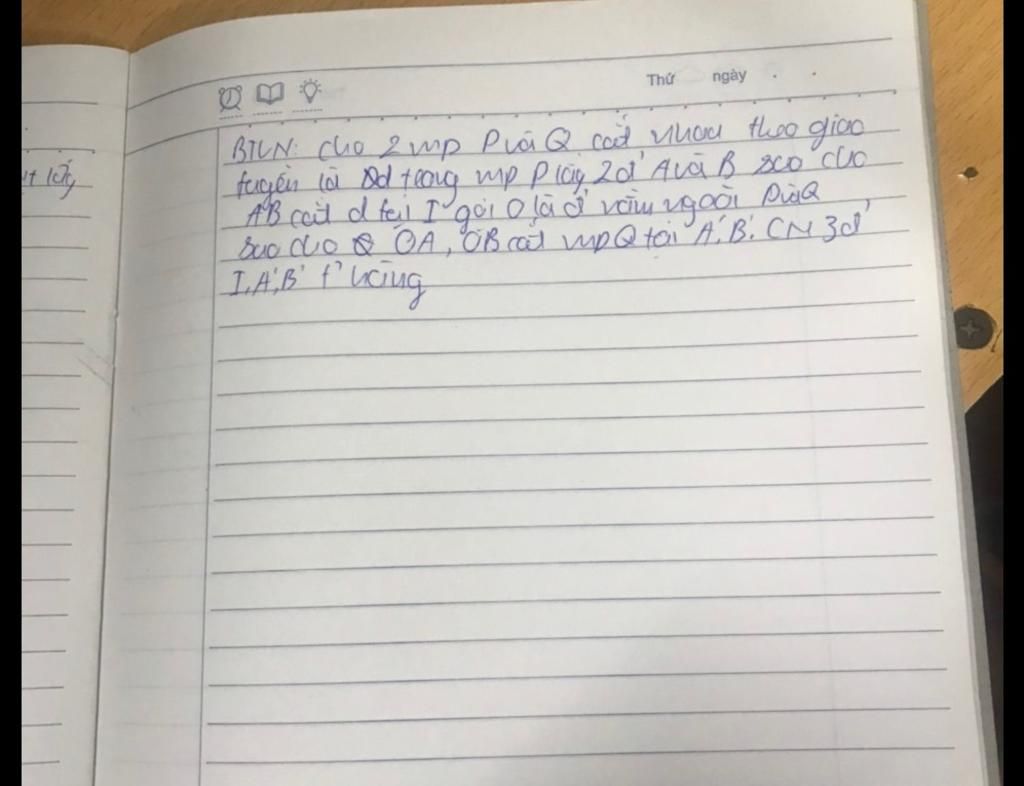 Thứ ngày
BTVN: Cho 2 mp P và Q cắt nhau theo giao
tuyến là d trong mp P lấy 2 đ' A và B sao cho
AB cắt d tại I gọi O là đ' nằm ngoài P và Q
sao cho OA, OB cắt mp Q tại A', B'. CM 3 đ'
I, A', B' t' hàng